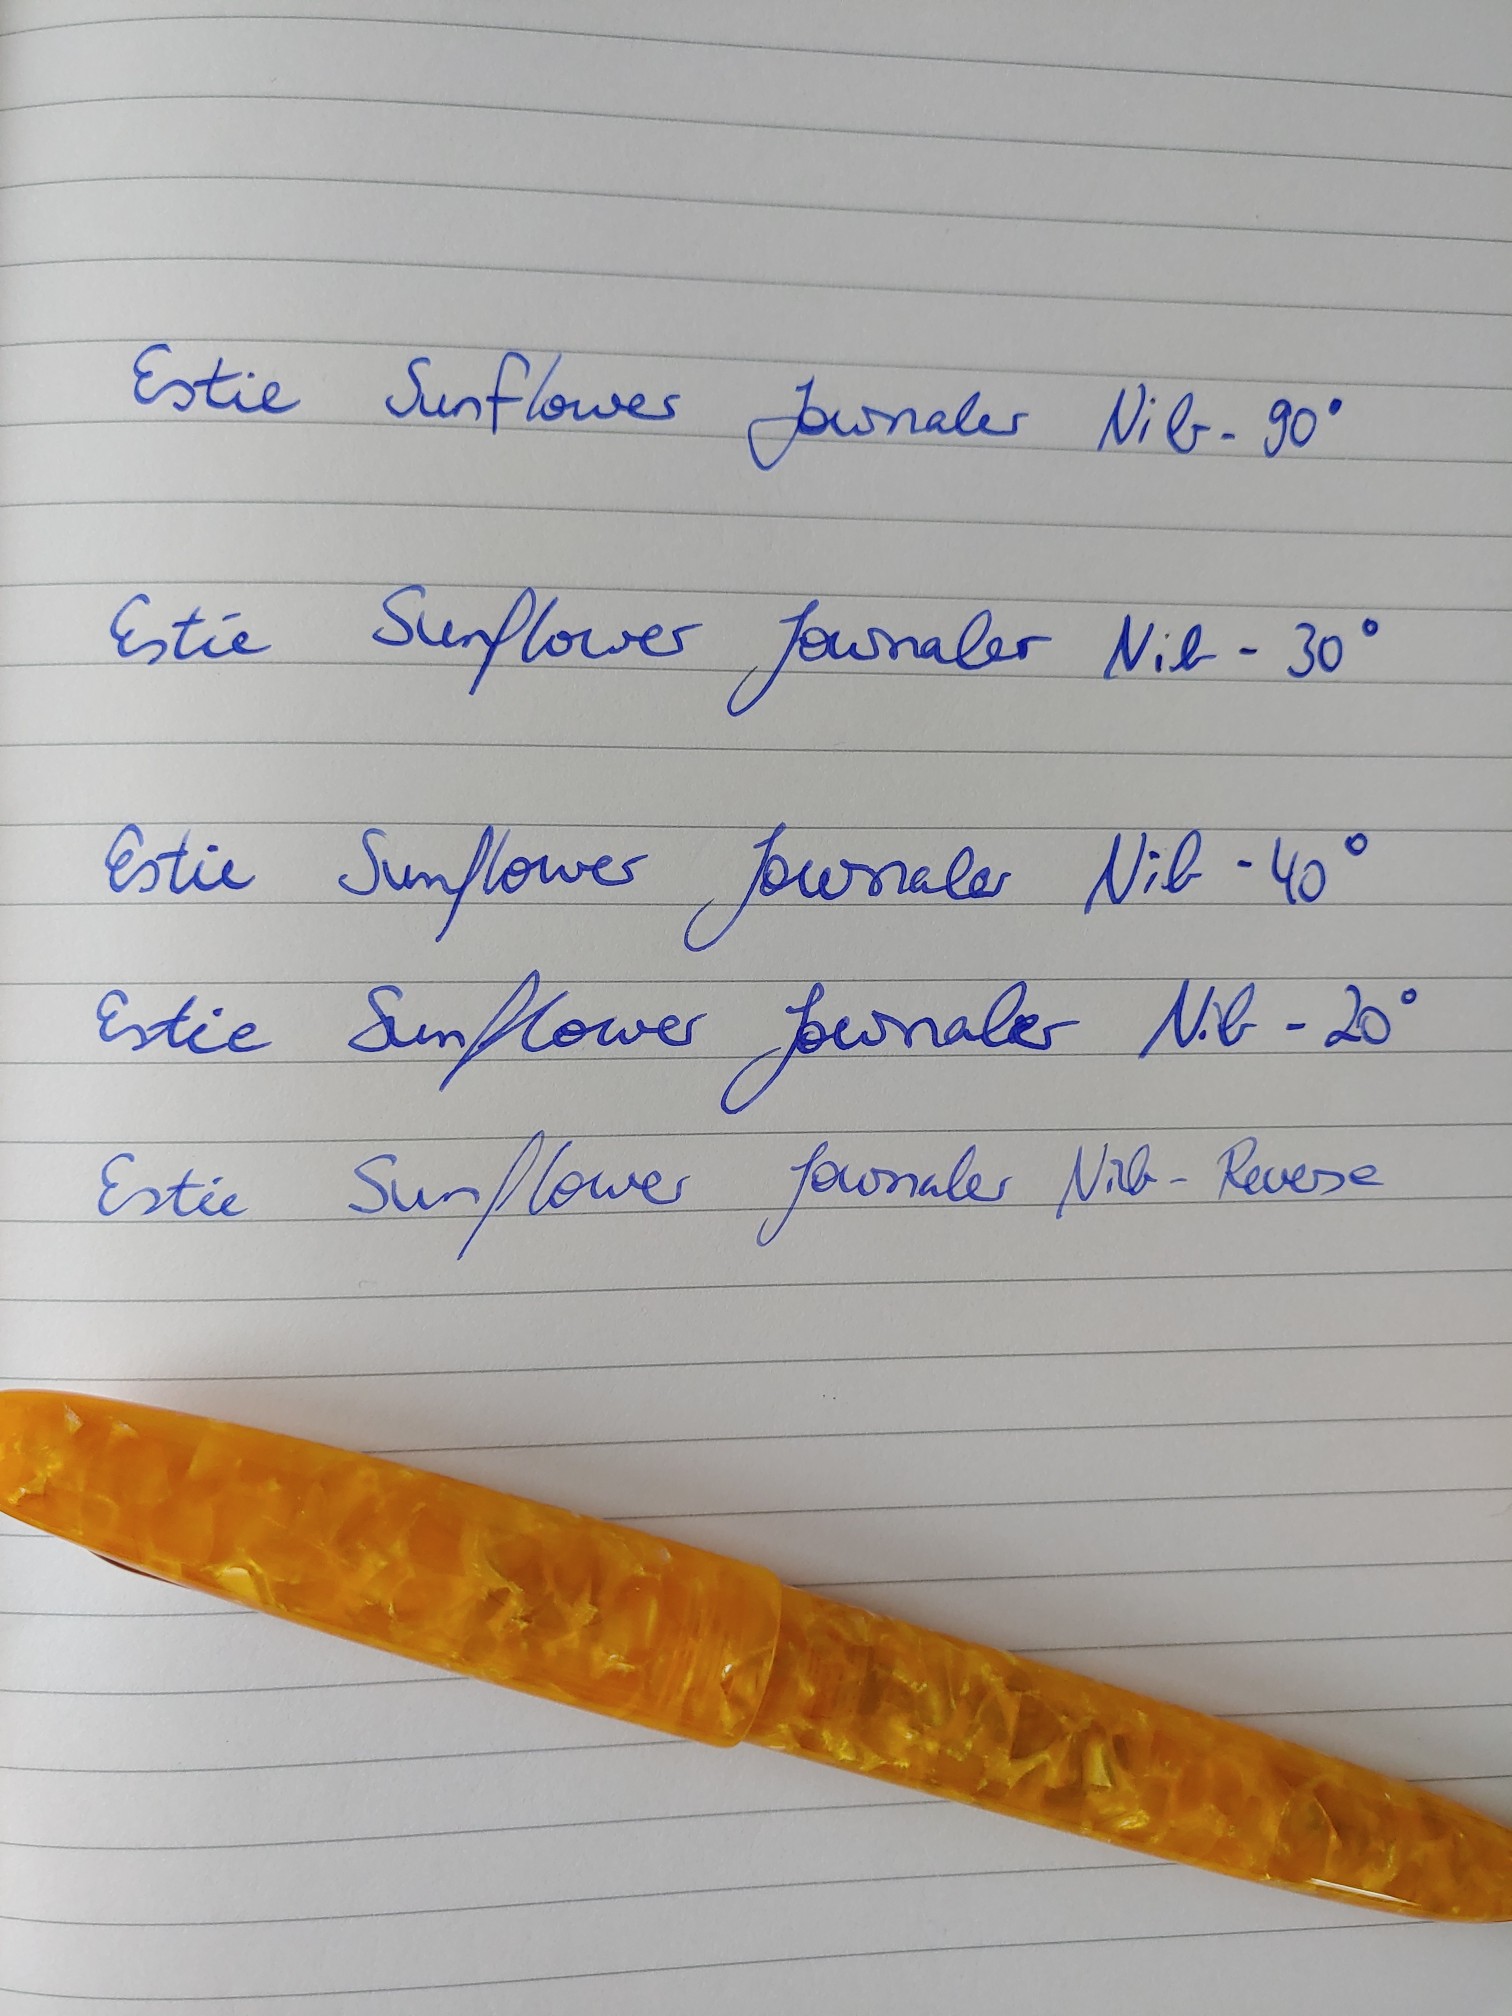 Estie Sunflower Journaler Nib - 90°
Estie Sunflower Journaler Nib - 30°
Estie Sunflower Journaler Nib - 40°
Estie Sunflower Journaler Nib - 20°
Estie Sunflower Journaler Nib - Reverse